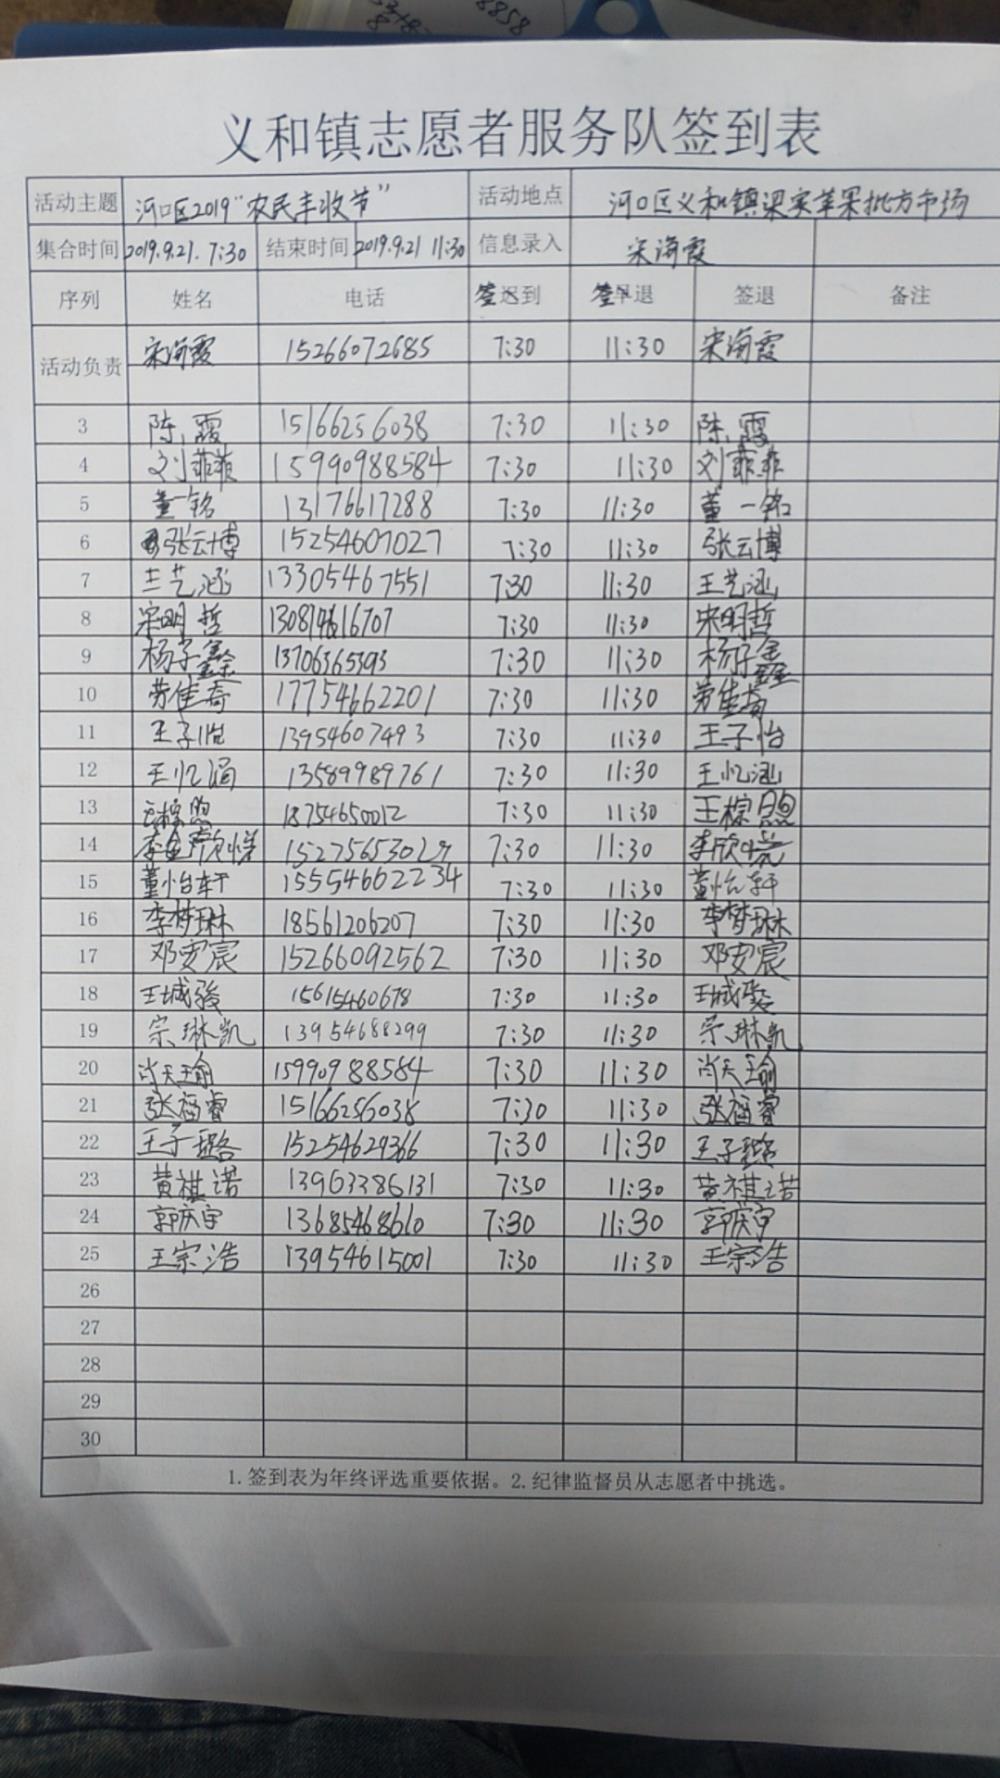 义和镇志愿者服务队签到表
活动主题 河口区2019"农民丰收节" 活动地点 河口区义和镇梁家苹果批方市场
集合时间 2019.9.21. 7:30 结束时间 2019.9.21 11:30 信息录入 宋海霞
序列 姓名 电话 签到 签退 签退 备注
活动负责 宋海霞 15266072685 7:30 11:30 宋海霞
3 陈霞 15166256038 7:30 11:30 陈霞
4 刘菲菲 15990988584 7:30 11:30 刘菲菲
5 董一铭 13176617288 7:30 11:30 董一铭
6 张云博 15254607027 7:30 11:30 张云博
7 王艺涵 13305467551 7:30 11:30 王艺涵
8 宋明哲 7:30 11:30 宋明哲
9 杨子鑫 13706365393 7:30 11:30 杨子鑫
10 劳佳奇 17754662201 7:30 11:30 劳佳奇
11 王子怡 13954607493 7:30 11:30 王子怡
12 王忆涵 13589989761 7:30 11:30 王忆涵
13 王棕煦 18754650012 7:30 11:30 王棕煦
14 7:30 11:30
15 董怡轩 15554662234 7:30 11:30 董怡轩
16 李梦琳 18561206207 7:30 11:30 李梦琳
17 邓安宸 15266092562 7:30 11:30 邓安宸
18 王城骏 15615460678 7:30 11:30 王城骏
19 宗琳凯 13954688299 7:30 11:30 宗琳凯
20 尚天瑜 15990988584 7:30 11:30 尚天瑜
21 张福睿 15166256038 7:30 11:30 张福睿
22 王子璐 15254629366 7:30 11:30 王子璐
23 黄祺诺 13963386131 7:30 11:30 黄祺诺
24 郭庆宇 13685468610 7:30 11:30 郭庆宇
25 王宗浩 13954615001 7:30 11:30 王宗浩
26
27
28
29
30
1.签到表为年终评选重要依据。2.纪律监督员从志愿者中挑选。